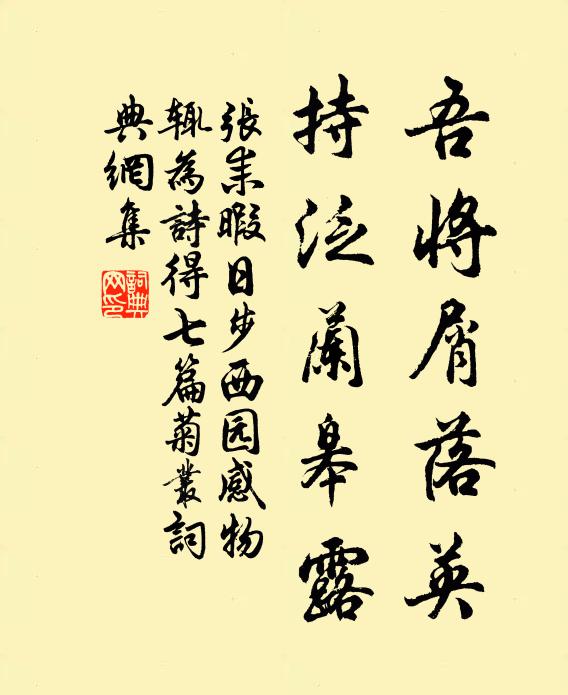 吾將屑落英
持泛蘭皋露
張耒暇日步西园感物
輒為詩得七篇菊叢詞
典網集
詞典
网印